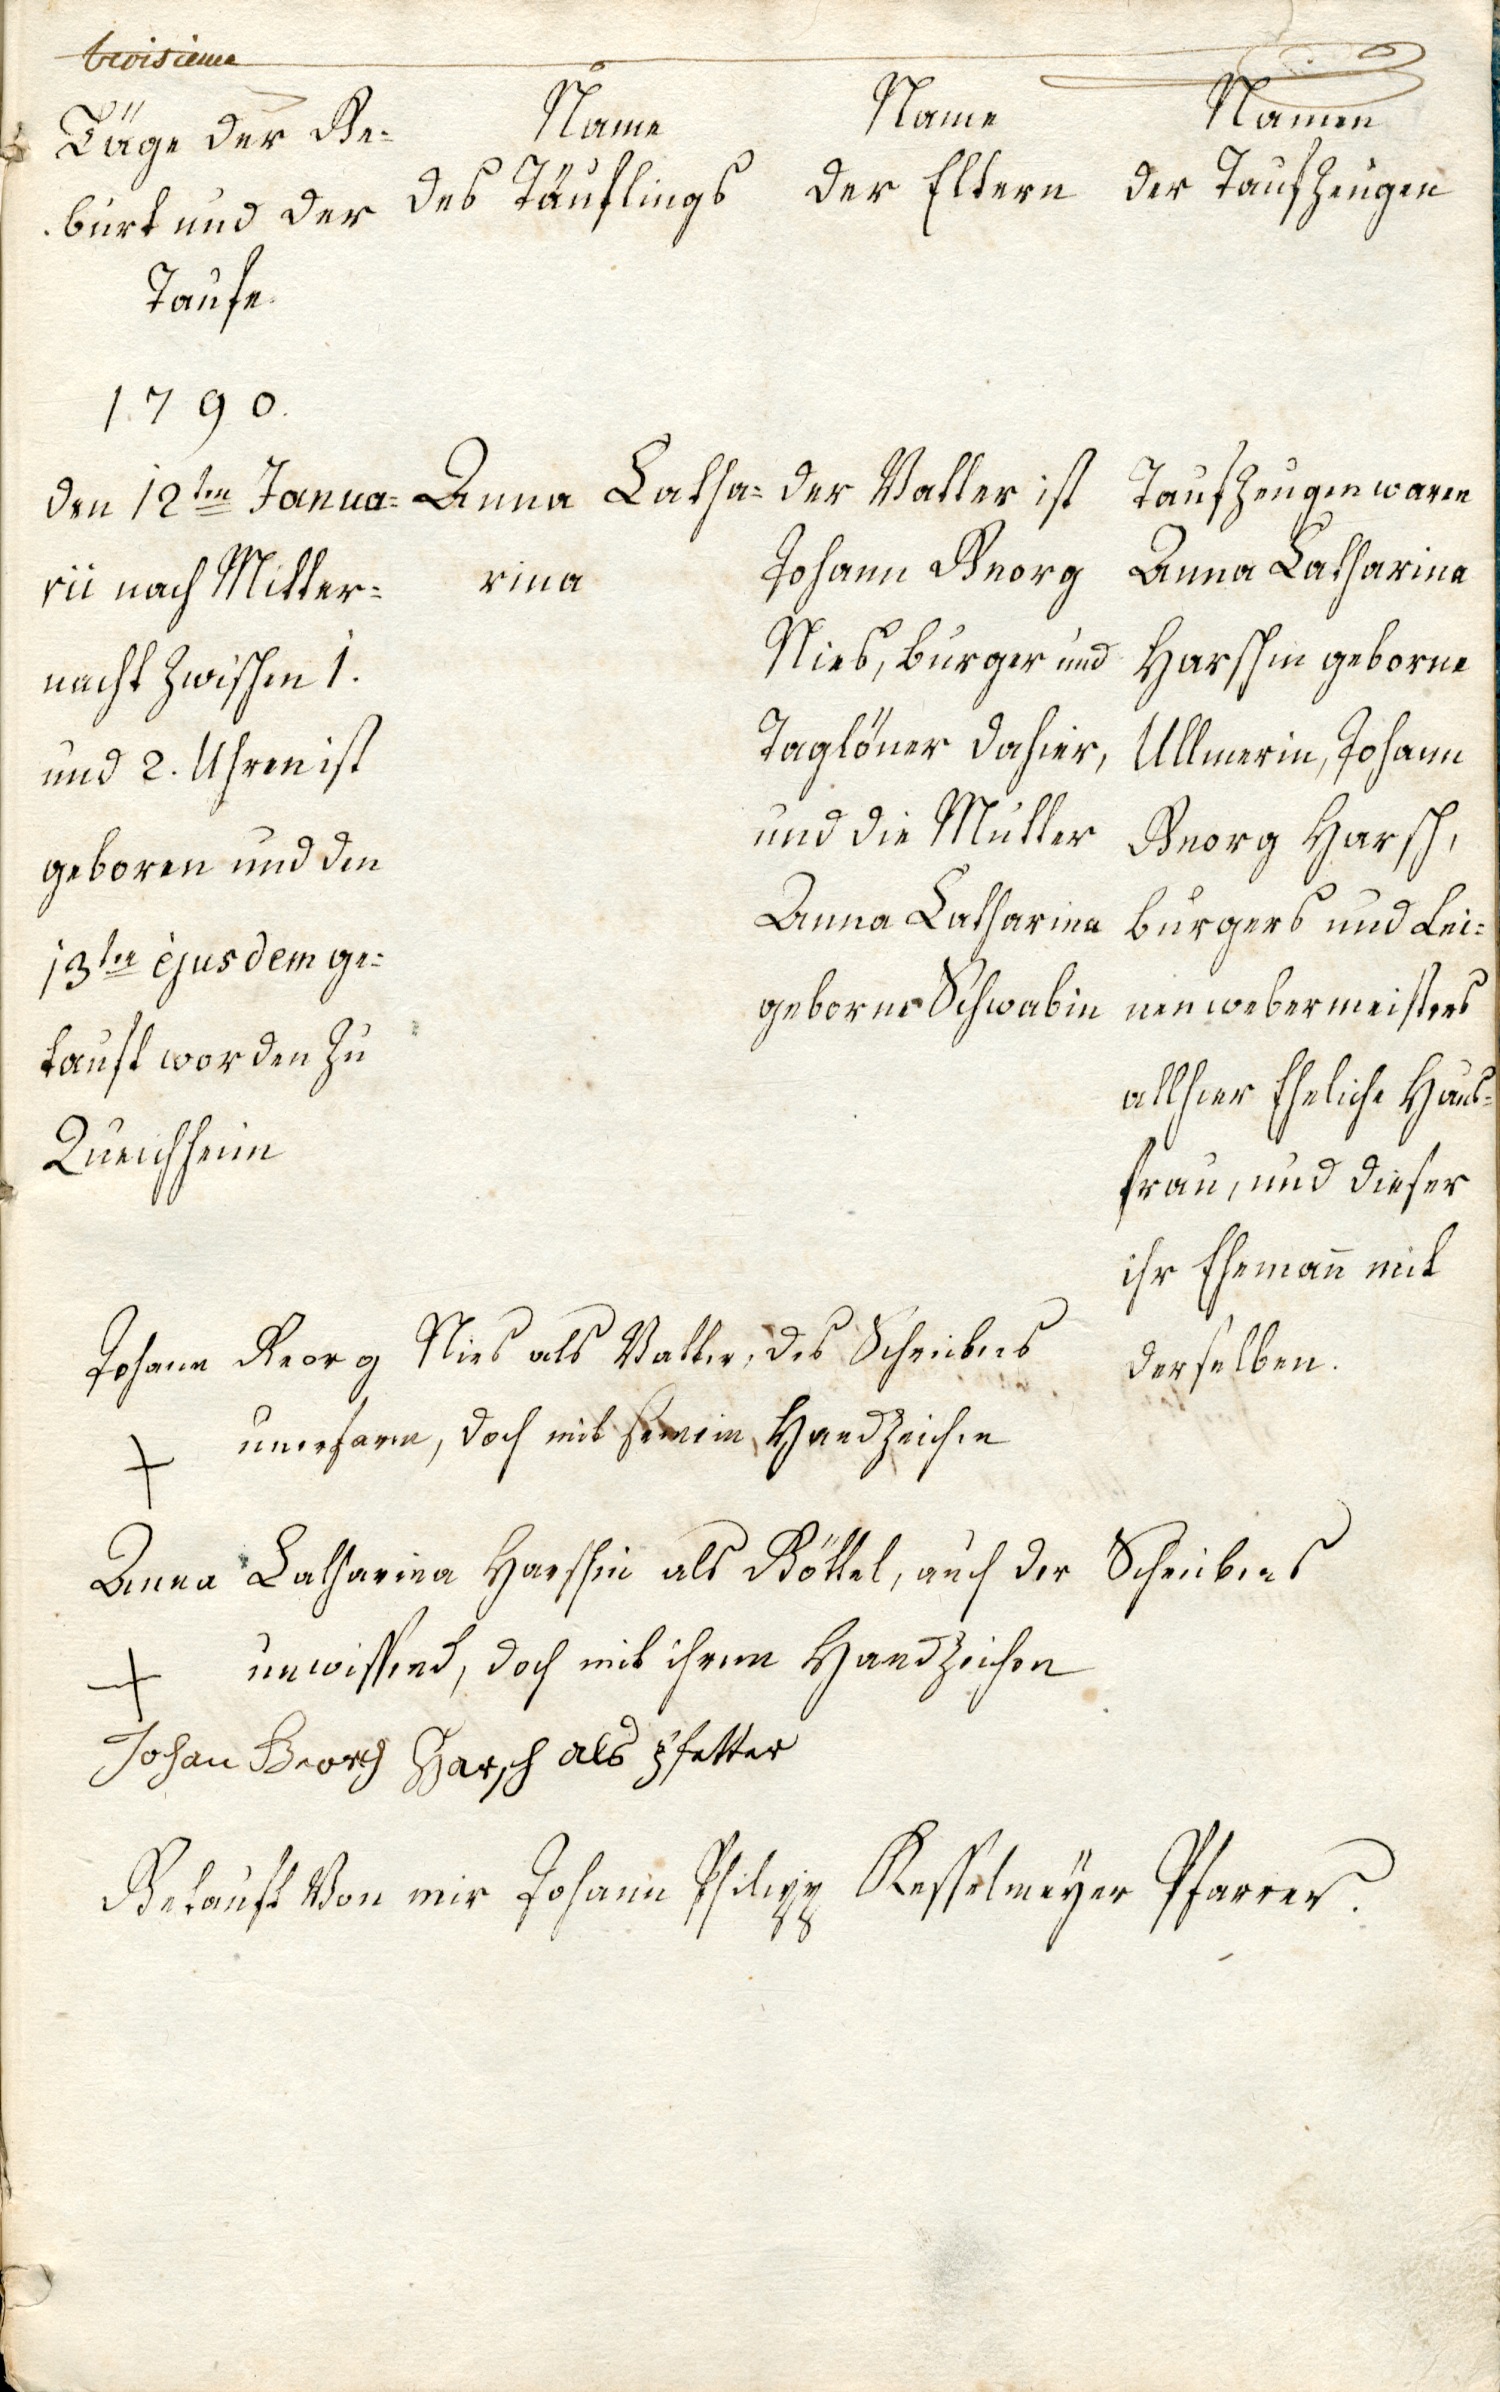 troisieme
Täge der Ge-
burt und der
Taufe.
Name
des Täuflings
Name
der Eltern
Namen
der Taufzeugen
1790.
den 12ten Janua-
rii nach Mitter-
nacht zwischen 1.
und 2. Uhren ist
geboren und den
13ten ejusdem ge-
tauft worden zu
Queichheim
Anna Catha-
rina
der Vatter ist
Johann Georg
Nies, burger und
Taglöner dahier,
und die Mutter
Anna Catharina
geborne Schwabin
Taufzeugen waren
Anna Catharina
Harschin geborne
Ullmerin, Johann
Georg Harsch,
burgers und Lei-
nenwebermeisters
allhier Eheliche Haus-
frau, und dieser
ihr Ehemañ mit
derselben.
Johann Georg Nies als Vatter, des Schreibens
unerfaren, doch mit seinem Handzeichen
+
Anna Catharina Harschin als Göttel, auch der Schreibens
unwissend, doch mit ihrem Handzeichen
+
Johan Georch Harsch als pfetter
Getauft Von mir Johann Philipp Kesselmeÿer Pfarrer.